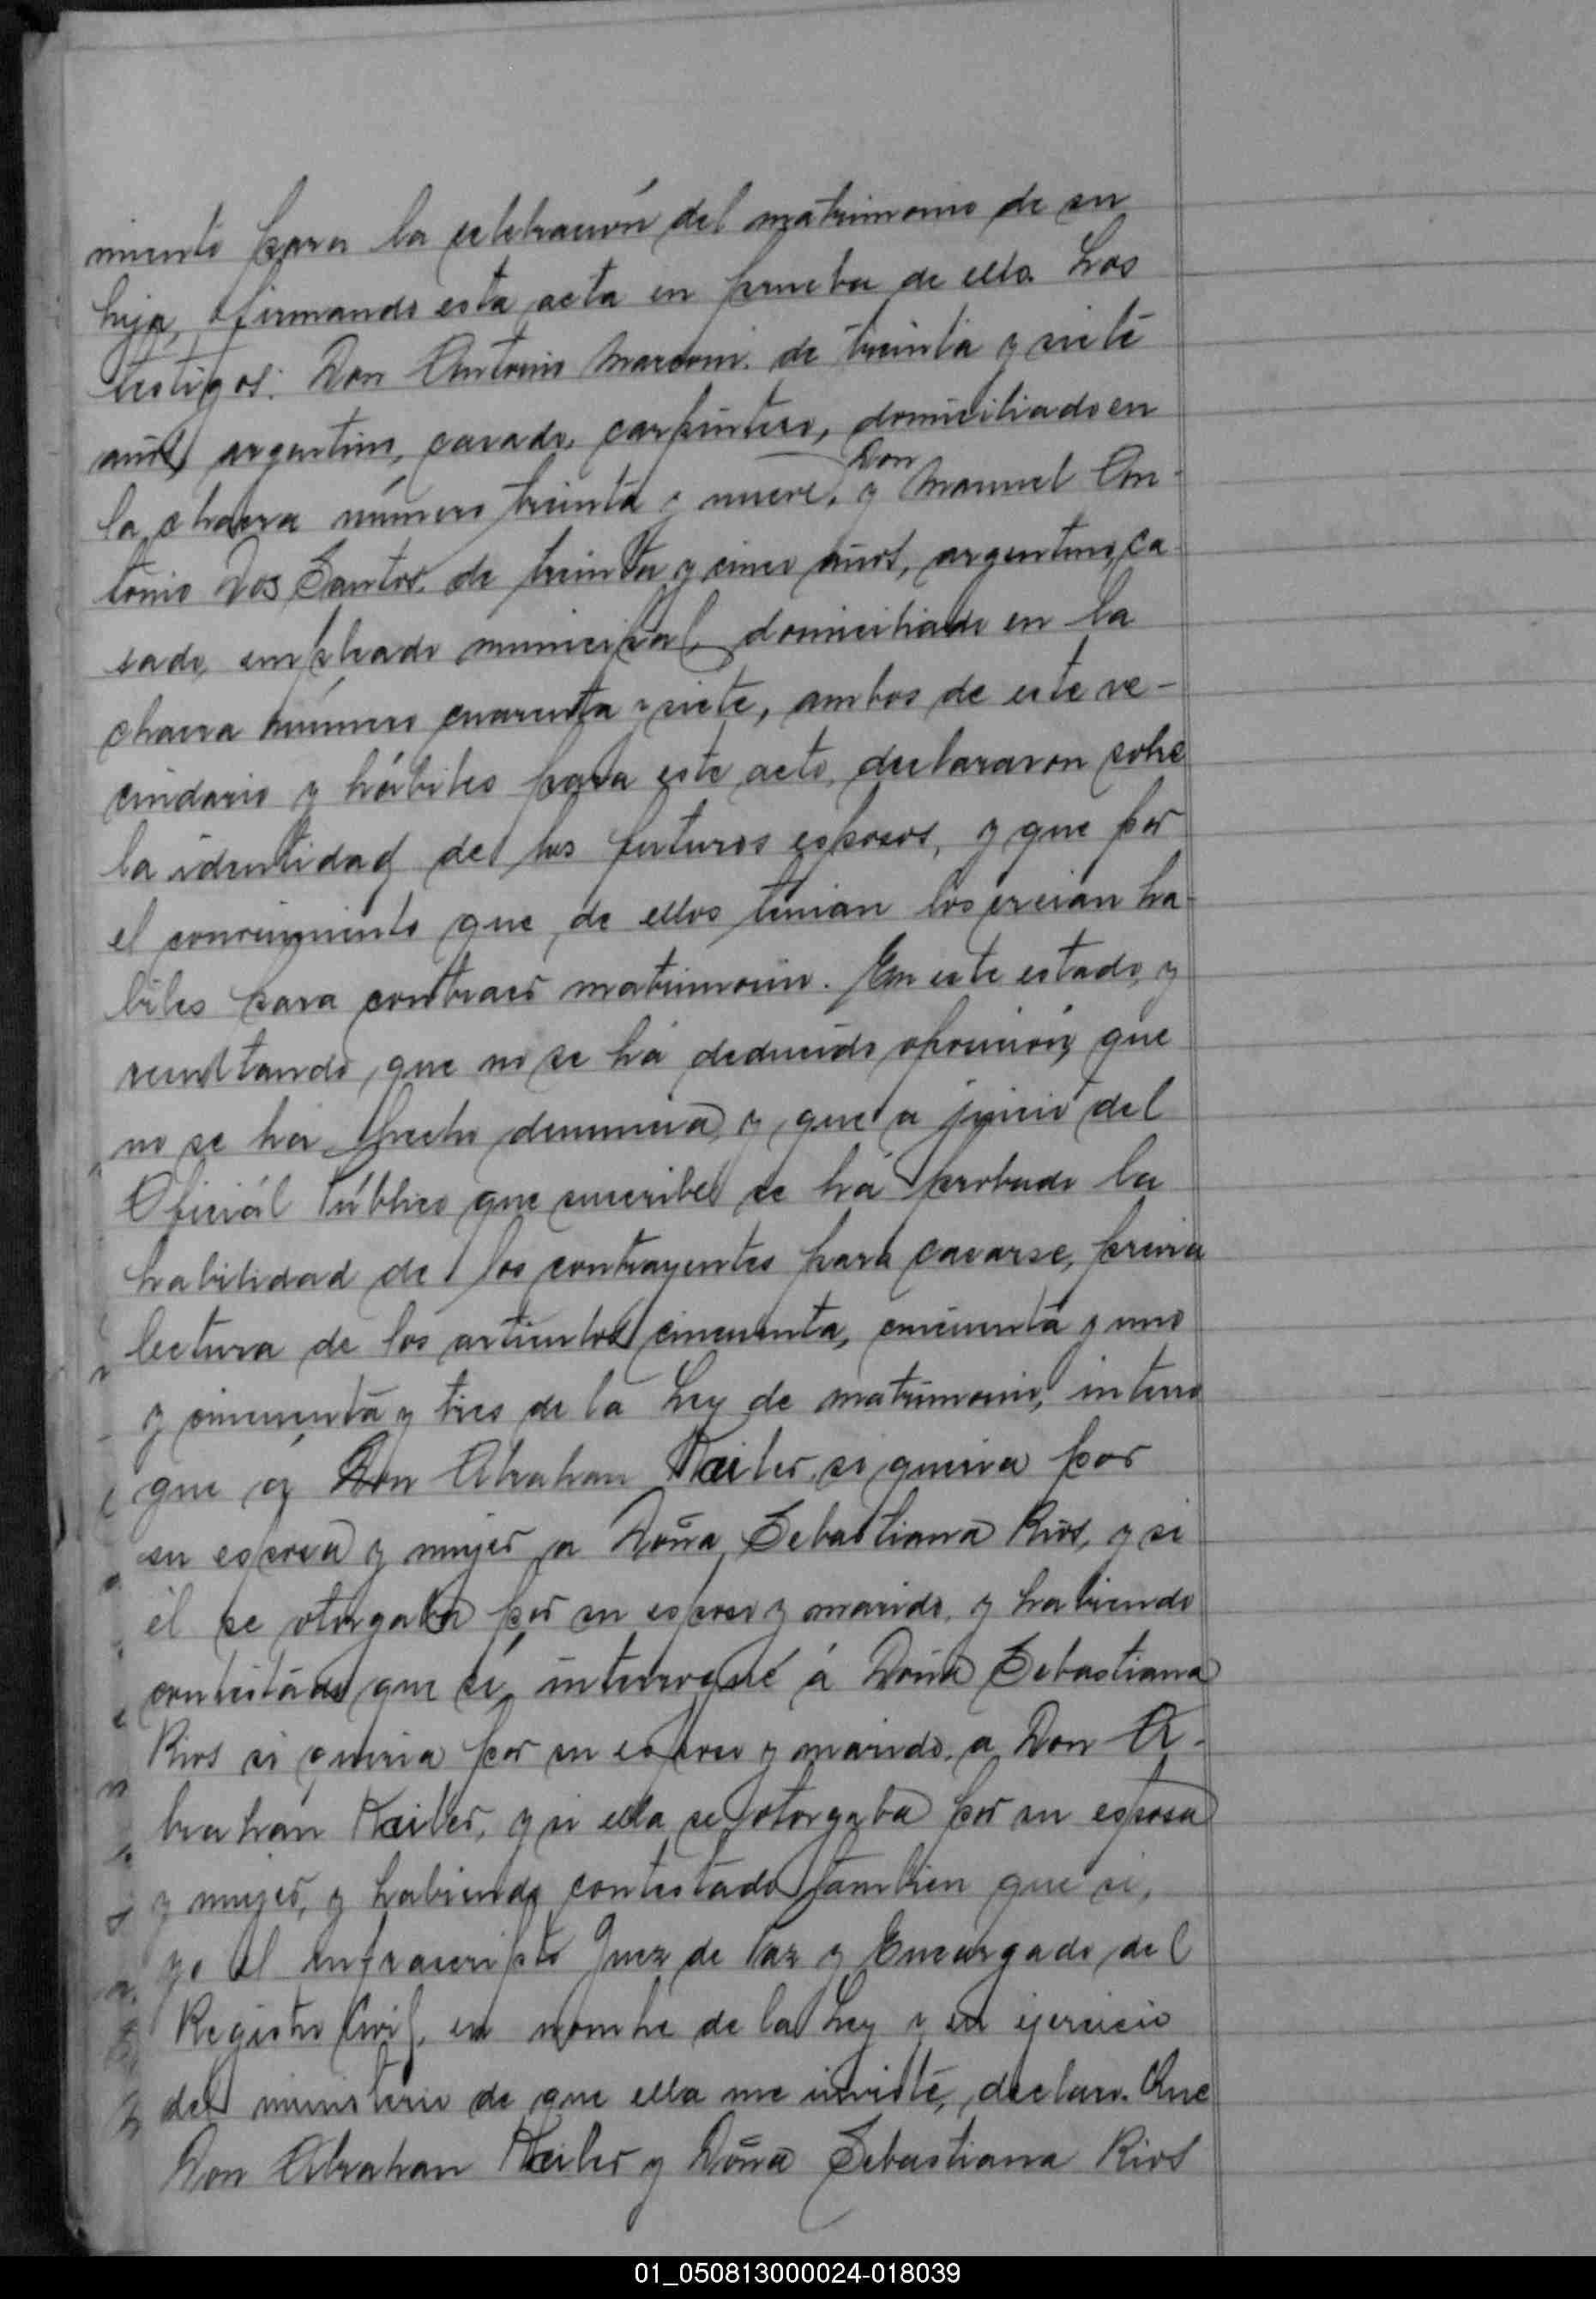 miento para la celebración del matrimonio de su
hija, firmando esta acta en prueba de ello. Los
testigos: Don Antonio Marconi, de treinta y siete
años, argentino, casado, carpintero, domiciliado en
la chacra número treinta y nueve, y Don Manuel An-
tonio Dos Santos, de treinta y cinco años, argentino, ca-
sado, empleado municipal, domiciliado en la
chacra número cuarenta y siete, ambos de este ve-
cindario y hábiles para este acto, declararon sobre
la identidad de los futuros esposos, y que por
el conocimiento que de ellos tenian los creian ha-
biles para contraer matrimonio. En este estado, y
resultando que no se há deducido oposición, que
no se há hecho denuncia, y que a juicio del
Oficiál Público que suscribe se há probado la
habilidad de los contrayentes para casarse, previa
lectura de los articulos cincuenta, cincuenta y uno
y cincuenta y tres de la Ley de matrimonio, interro
gue á Don Abrahan Keiler, si queria por
su esposa y mujer a Doña Sebastiana Rios, y si
él se otorgaba por su esposo y marido, y habiendo
contestado que sí, interrogué á Doña Sebastiana
Rios si queria por su esposo y marido, a Don A-
brahán Keiler, y si ella se otorgaba por su esposa
y mujer, y habiendo contestado tambien que si,
yo el infrascripto Juez de Paz y Encargado del
Registro Civil, en nombre de la Ley y en ejercicio
del ministerio de que ella me inviste, declaro: Que
Don Abrahan Keiler y Doña Sebastiana Rios
01_050813000024-018039